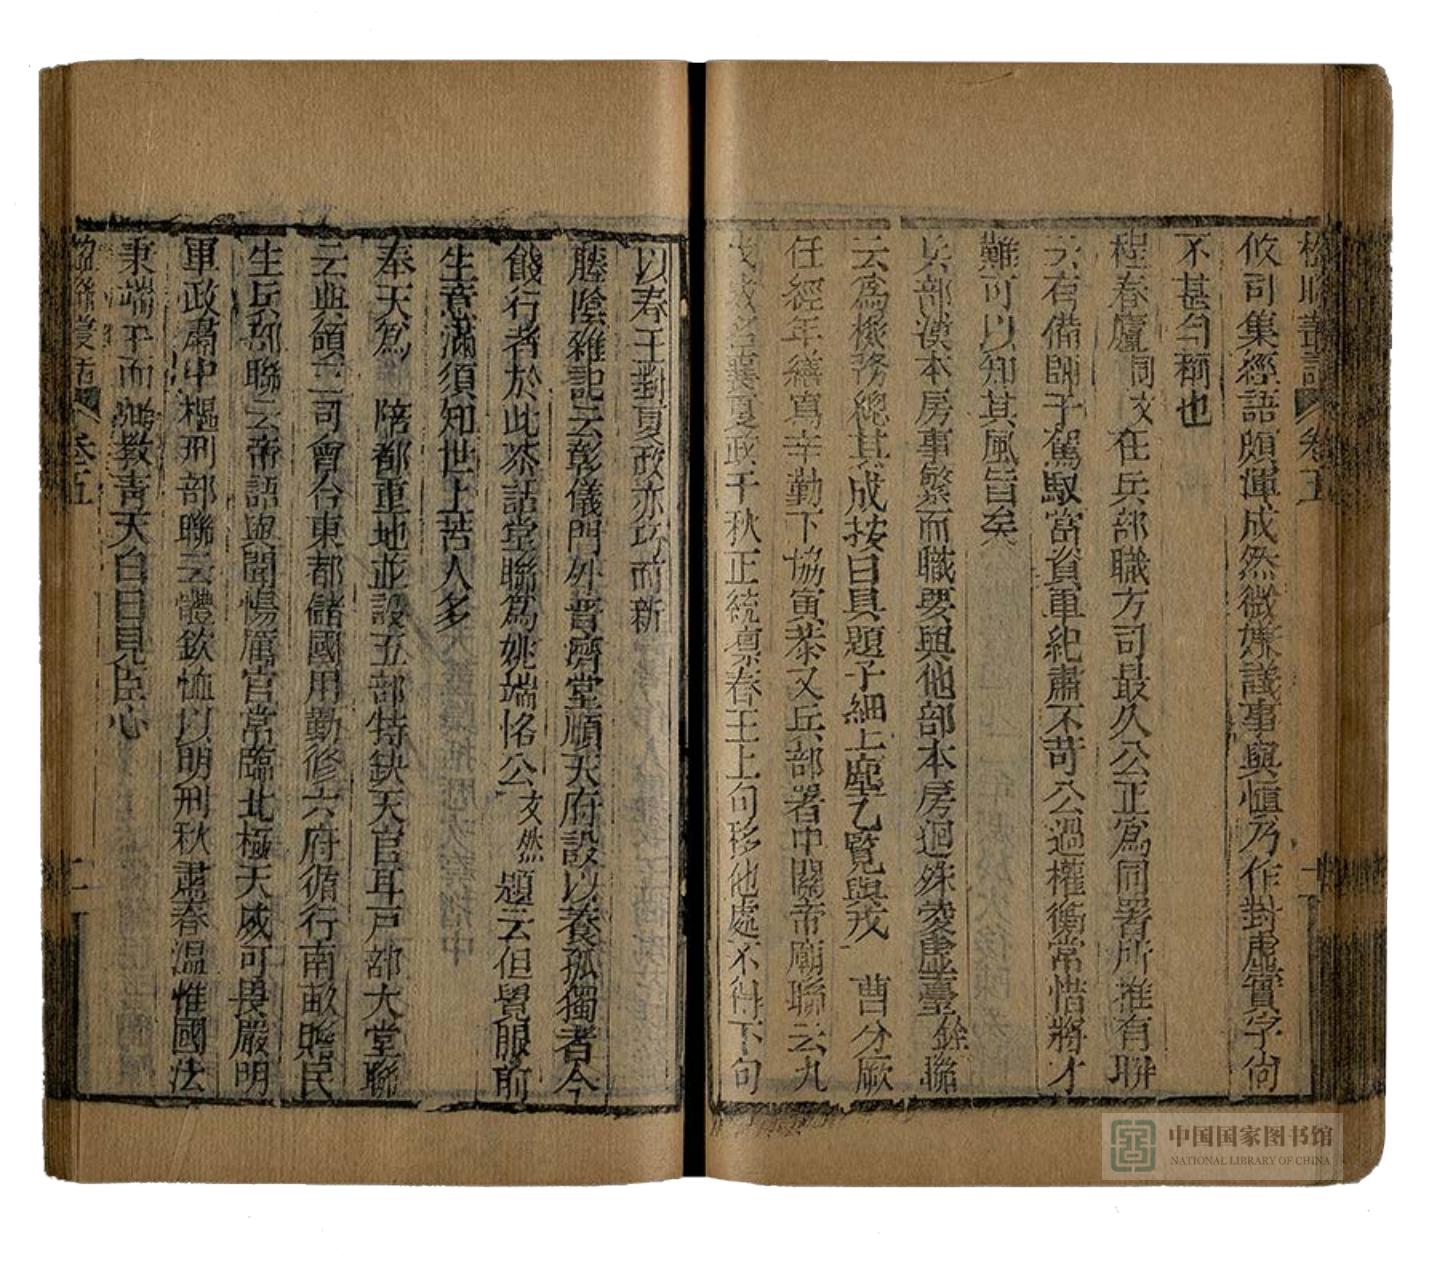 楹聯叢話 卷五 十
攸司集經語頗渾成然微嫌議事與愼乃作對虛實字尙
不甚勻稱也
程春廬同文在兵部職方司最久公正爲同署所推有聯
云有備師子駕馭當資軍紀肅不苛公過權衡常惜將才
難可以知其風旨矣
兵部漢本房事繁而職要與他部本房迥殊凌虛臺餘聯
云爲機務總其成按日具題子細上塵乙覽與戎曹分厥
任經年繕寫辛勤下協寅恭又兵部署中關帝廟聯云九
伐丧名襄夏政千秋正統凛春王上句移他處不得下句
以春王對夏政亦巧而新
藤陰雜記云彰儀門外普濟堂順天府設以養孤獨者今
餞行者於此茶話堂聯爲姚端恪公文然題云但覺眼前
生意滿須知世上苦人多
奉天爲陪都重地並設五部特缺天官耳戶部大堂聯
云典領三司會合東都儲國用勤修六府循行南畝贍民
生兵部聯云帝語與聞惕厲官常臨北極天威可畏嚴明
軍政肅中樞刑部聯云體欽恤以明刑秋肅春溫惟國法
秉端平而弼教青天白日見臣心
楹聯叢話 卷五
中国国家图书馆
NATIONAL LIBRARY OF CHINA